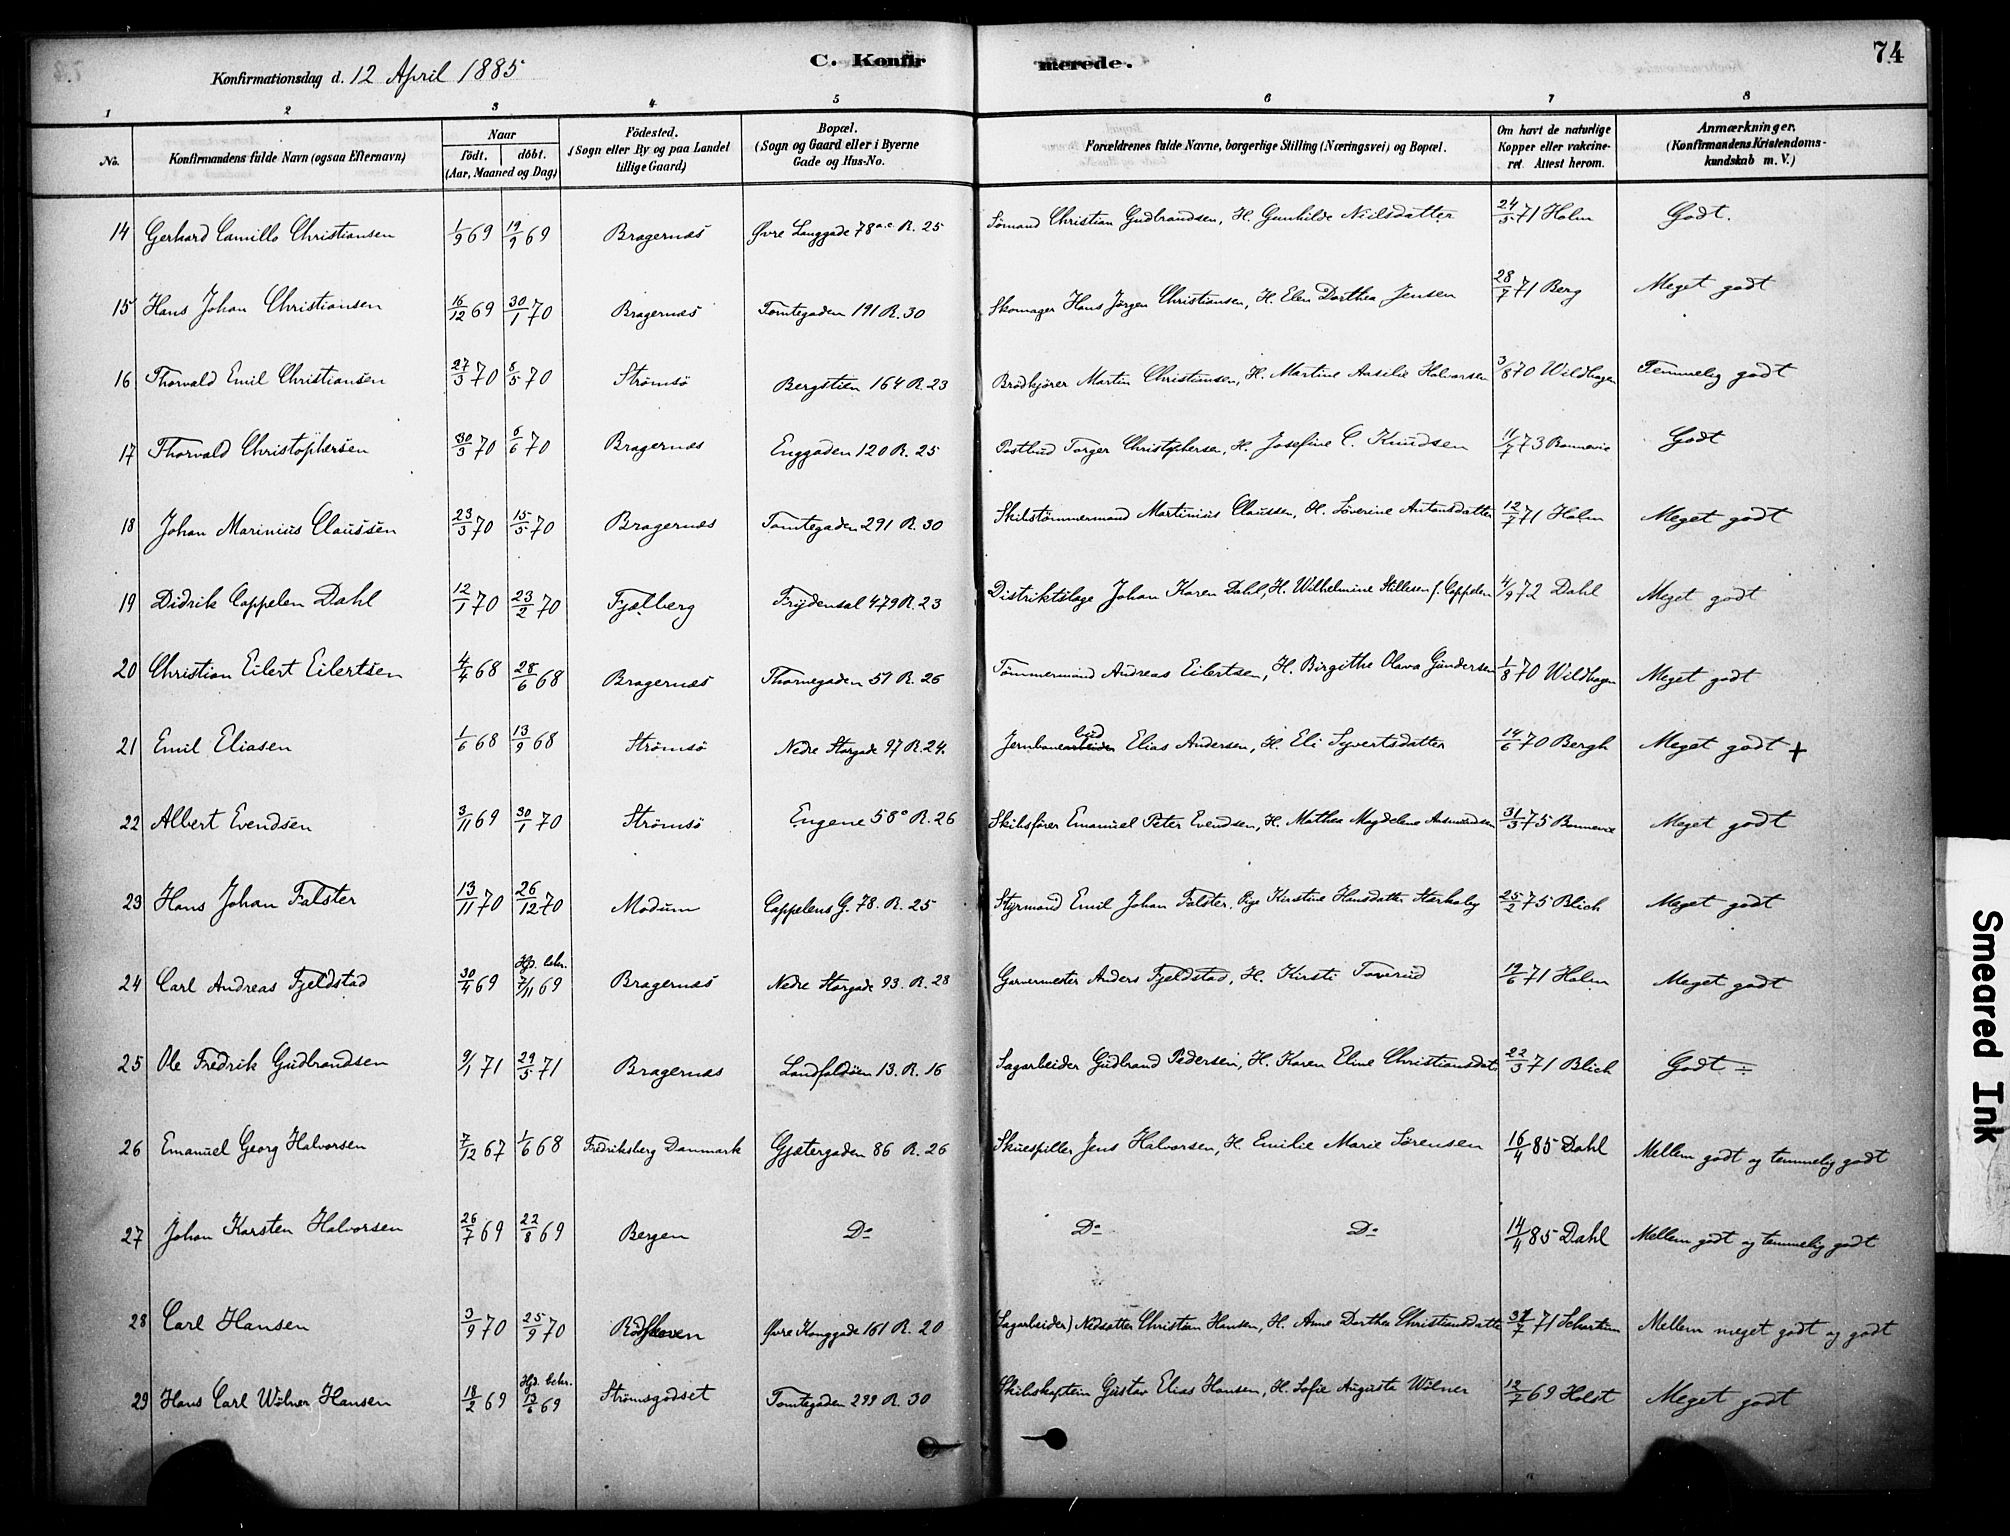 Konfirmationsdag d. 12 April 1885
C. Konfirmerede.
74
1 2 3 4 5 6 7 8
No.
Konfirmandens fulde Navn (ogsaa Efternavn)
Naar
födt. döbt.
(Aar, Maaned og Dag)
Födested.
(Sogn eller By og paa Landet
tillige Gaard)
Bopæl.
(Sogn og Gaard eller i Byerne
Gade og Hus-No.
Forældrenes fulde Navne, borgerlige Stilling (Næringsvei) og Bopæl.
Om havt de naturlige
Kopper eller vakcine-
ret. Attest herom.
Anmærkninger.
(Konfirmandens Kristendoms-
kundskab m. V.)
14 Gerhard Camillo Christiansen 1/9 69 19/9 69 Bragernæs Øvre Langgade 78 a.c. R. 25 Sömand Christian Gudbrandsen, H. Gunhilde Nielsdatter 24/5 71 Holm Godt.
15 Hans Johan Christiansen 16/12 69 30/1 70 Bragernæs Tomtegaden 191 R. 30 Skomager Hans Jørgen Christiansen, H. Elen Dorthea Jensen 28/7 71 Berg Meget godt
16 Thorvald Emil Christiansen 27/3 70 8/5 70 Strømsö Bergstien 164 R. 23 Brödkjører Martin Christiansen, H. Martine Halvorsen 3/8 70 Wildhagen Temmelig godt
17 Thorvald Christophersen 30/3 70 6/6 70 Bragernæs Enggaden 120 R. 25 Postbud Torger Christophersen, H. Josefine C. Knudsen 11/7 73 Bonnevie Godt
18 Johan Marinius Claussen 23/3 70 15/5 70 Bragernæs Tomtegaden 291 R. 30 Skibstömmermand Martinius Claussen, H. Sörerine Antonsdatter 12/7 71 Holm Meget godt
19 Didrik Cappelen Dahl 12/1 70 23/2 70 Fjælberg Frydensal 479 R. 23 Distriktslæge Johan Koren Dahl, H. Wilhelmine Stillesen f. Cappelen 4/9 72 Dahl Meget godt
20 Christian Eilert Eilertsen 4/4 68 28/6 68 Bragernæs Thornegaden 51 R. 26 Tömmermand Andreas Eilertsen, H. Birgithe Olava Gundersen 1/8 70 Wildhagen Meget godt
21 Emil Eliasen 1/6 68 13/9 68 Strömsö Nedre Storgade 97 R. 24. Jernbanearbeider bud Elias Andersen, H. Eli Syvertsdatter 14/6 70 Bergh Meget godt +
22 Albert Evendsen 3/11 69 30/1 70 Strömsö Engene 58 R. 26 Skibsförer Emanuel Peter Evendsen, H. Mathea Magdelene Asmundsen 31/3 75 Bonnevie Meget godt
23 Hans Johan Falster 13/11 70 26/12 70 Modum Cappelens G. 78. R. 25 Styrmand Emil Johan Falster. Pige Kirstine Hansdatter 25/2 75 Blich Meget godt
24 Carl Andreas Fjeldstad 30/4 69 Hjd. bekr. 7/11 69 Bragernæs Nedre Storgade 93. R. 28 Garvermester Anders Fjeldstad, H. Kirsti Toverud 19/6 71 Holm Meget godt
25 Ole Fredrik Gudbrandsen 9/1 71 29/5 71 Bragernæs Landfaldöen 13. R. 16 Sagarbeider Gudbrand Pedersen, H. Karen Eline Christiansdat. 22/3 71 Blich Godt
26 Emanuel Georg Halvorsen 7/12 67 1/6 68 Fredriksberg Danmark Gjætergaden 86 R. 26 Skuespiller Jens Halvorsen, H. Emilie Marie Sørensen 16/4 85 Dahl Mellem godt og temmelig godt
27 Johan Karsten Halvorsen 26/7 69 22/8 69 Bergen Do Do Do 14/4 85 Dahl Mellem godt og temmelig godt
28 Carl Hansen 3/9 70 25/9 70 Rödskeven Øvre Storgade 161 R. 20 (Sagarbeider) Nedsatter Christian Hansen, H. Anne Dorthea Christiansdatter 31/7 71 Schartum Mellem meget godt og godt
29 Hans Carl Wölner Hansen 18/2 69 Hjd. bekr. 13/6 69 Strömsgodset Tomtegaden 299 R. 30 Skibskaptein Gustav Elias Hansen, H. Sofie Augusta Wölner 12/7 69 Holst Meget godt
Smeared Ink